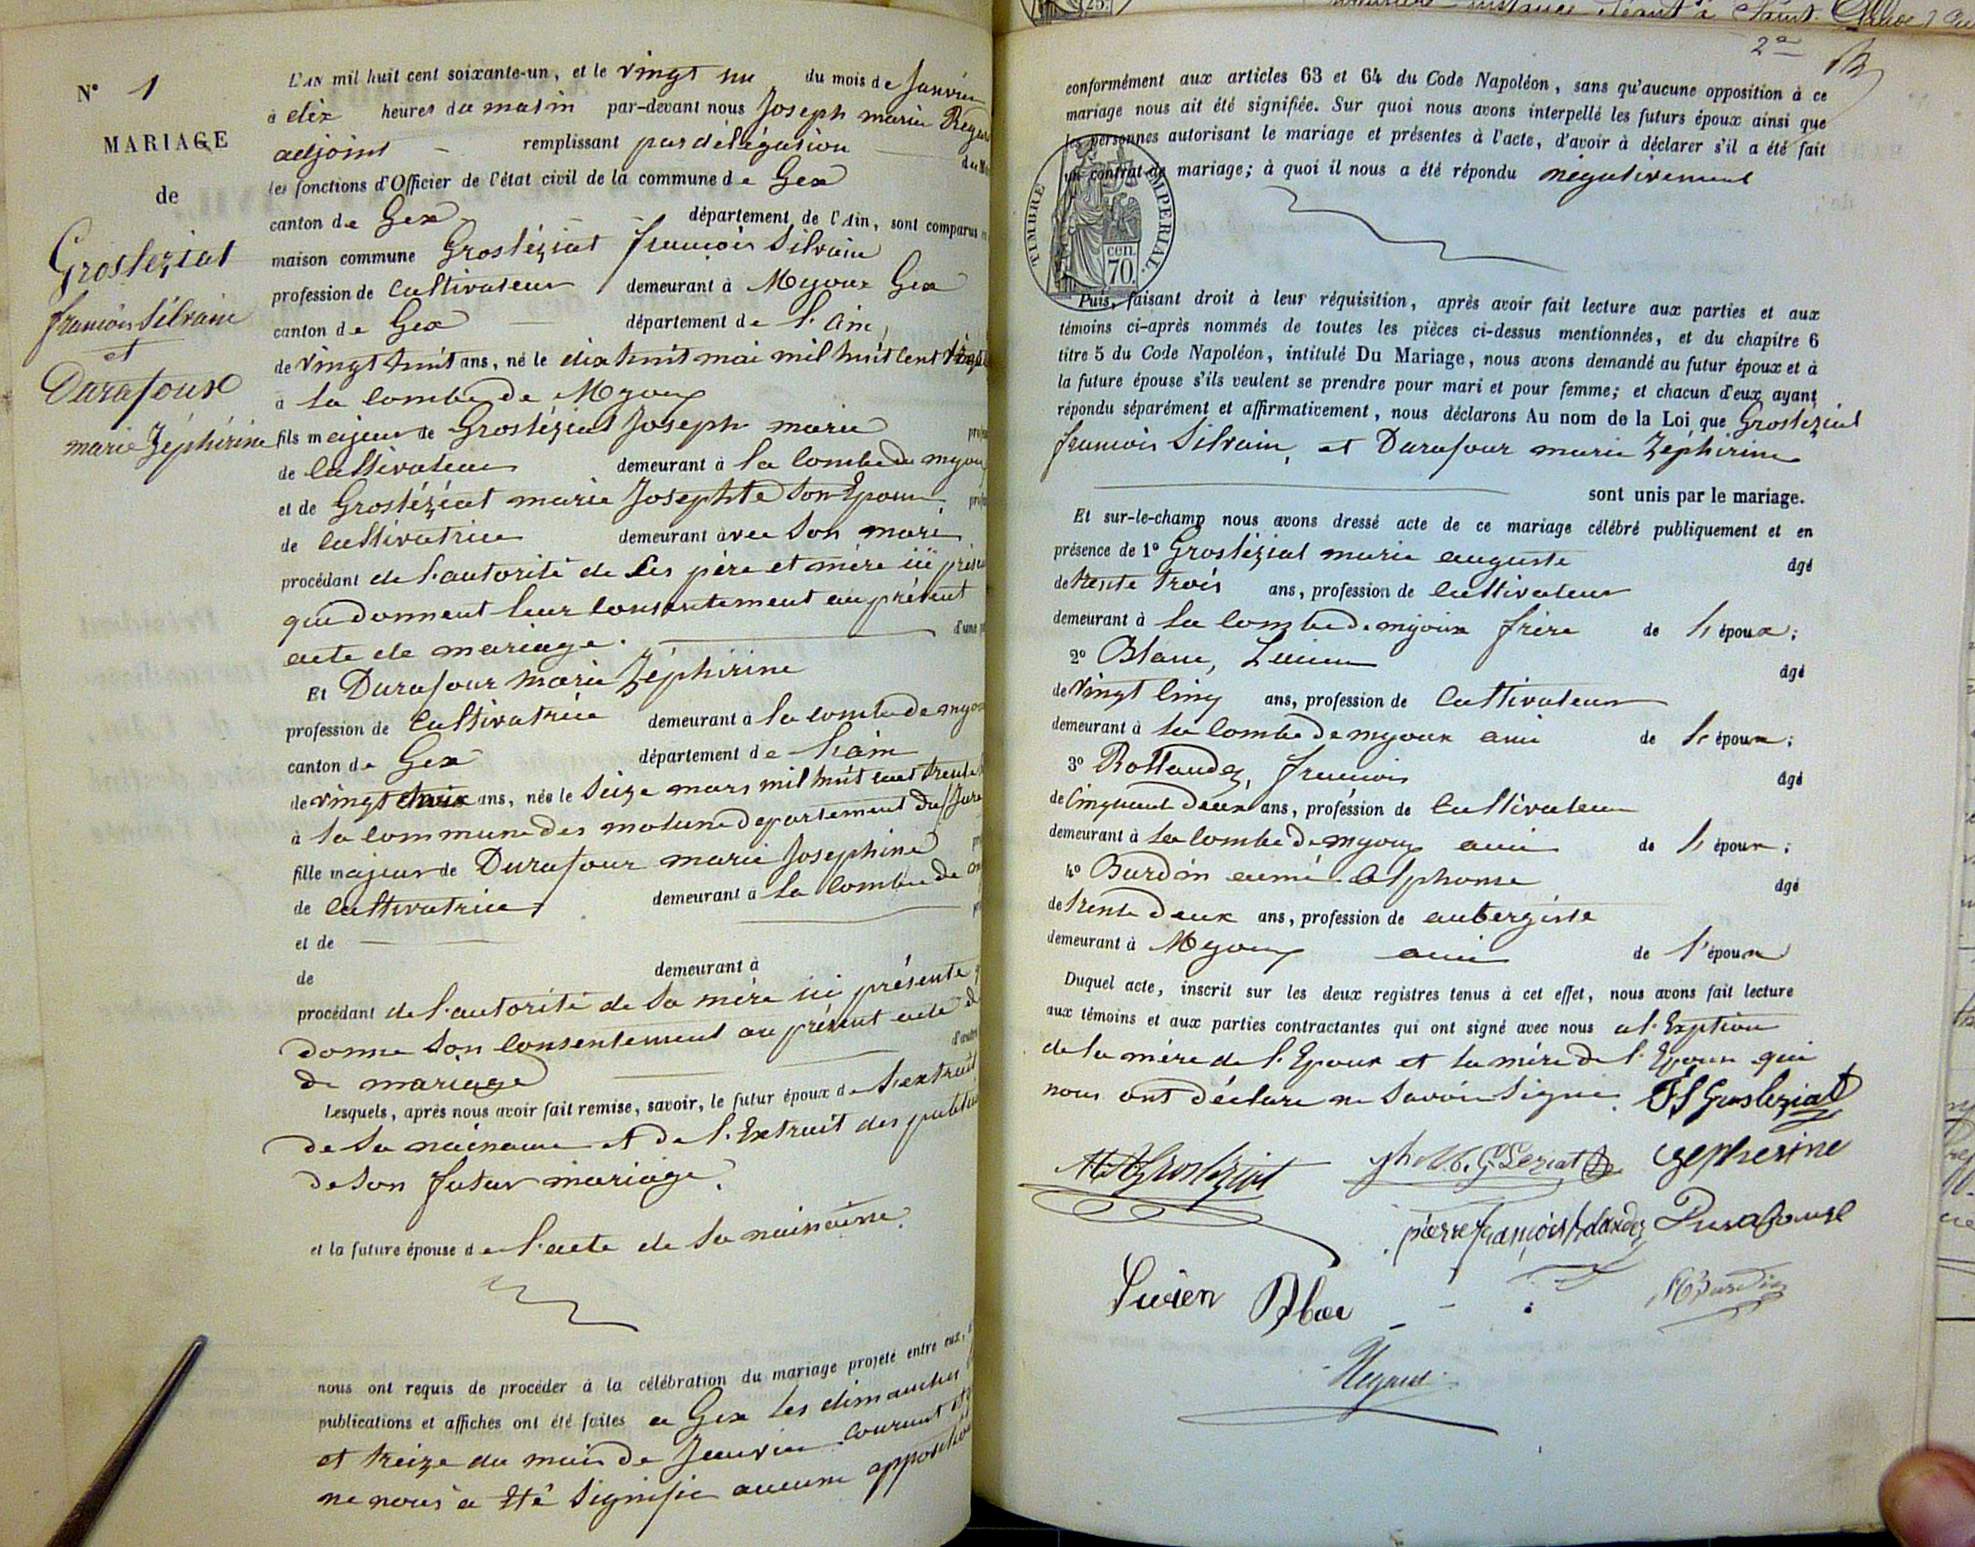 N° 1
MARIAGE
de
Grosleziat
francois Silvain
et
Durafour
marie Zéphirine
L'AN mil huit cent soixante-un, et le vingt un du mois de Janvier
à dix heures du matin par-devant nous Joseph marie
adjoint remplissant par délégation
les fonctions d'Officier de l'état civil de la commune de Gex
canton de Gex département de l'Ain, sont comparus
maison commune Grosléziat francois Silvain
profession de Cultivateur demeurant à Mijoux Gex
canton de Gex département de l'ain
de vingt huit ans, né le dix huit mai mil huit cent
à la combe de Mijoux
fils majeur de Grosléziat Joseph marie
de Cultivateur demeurant à la combe de mijoux
et de Grosléziat marie Josephte Son Epouse
de Cultivatrice demeurant avec Son mari
procédant de l'autorité de Ses père et mère ici
qui donnent leur consentement au présent
acte de mariage.
Et Durafour marie Zéphirine
profession de Cultivatrice demeurant à la combe de
canton de Gex département de l'ain
de vingt ans, née le Seize mars mil huit cent trente
à la commune des molunes departement du Jura
fille majeur de Durafour marie Josephine
de Cultivatrice demeurant à la combe de
et de
de demeurant à
procédant de l'autorité de Sa mère ici présente
donne Son Consentement au présent acte
de mariage
Lesquels, après nous avoir fait remise, savoir, le futur époux de l'extrait
de Sa naissance et de l'Extrait des
de Son futur mariage.
et la future épouse de l'acte de Sa naissance.
nous ont requis de procéder à la célébration du mariage projeté entre eux,
publications et affiches ont été faites a Gex Les dimanches
et treize du mois de Janvier courant
ne nous a été Signifie aucune opposition
2e
conformément aux articles 63 et 64 du Code Napoléon, sans qu'aucune opposition à ce
mariage nous ait été signifiée. Sur quoi nous avons interpellé les futurs époux ainsi que
les personnes autorisant le mariage et présentes à l'acte, d'avoir à déclarer s'il a été fait
un contrat de mariage; à quoi il nous a été répondu négativement
TIMBRE IMPERIAL.
cen.
70.
Puis, faisant droit à leur réquisition, après avoir fait lecture aux parties et aux
témoins ci-après nommés de toutes les pièces ci-dessus mentionnées, et du chapitre 6
titre 5 du Code Napoléon, intitulé Du Mariage, nous avons demandé au futur époux et à
la future épouse s'ils veulent se prendre pour mari et pour femme; et chacun d'eux ayant
répondu séparément et affirmativement, nous déclarons Au nom de la Loi que Grosléziat
francois Silvain, et Durafour marie Zéphirine
sont unis par le mariage.
Et sur-le-champ nous avons dressé acte de ce mariage célébré publiquement et en
présence de 1° Grosléziat marie auguste âgé
de trente trois ans, profession de Cultivateur
demeurant à La combe de mijoux frère de l'époux;
2° Blanc, Lucien âgé
de vingt cinq ans, profession de Cultivateur
demeurant à La combe de mijoux ami de l'époux;
3° Rollandez, francois âgé
de Cinquante deux ans, profession de Cultivateur
demeurant à La combe de mijoux ami de l'époux;
4° Burdin aimé Alphonse âgé
de trente deux ans, profession de aubergiste
demeurant à Mijoux ami de l'époux
Duquel acte, inscrit sur les deux registres tenus à cet effet, nous avons fait lecture
aux témoins et aux parties contractantes qui ont signé avec nous a l'Exption
de la mère de l'Epoux et la mère de l'Epouse qui
nous ont déclare ne Savoir Signer. F S Grosleziat
zepherine
pierre françois Rolandez Durafour
Lucien Blanc